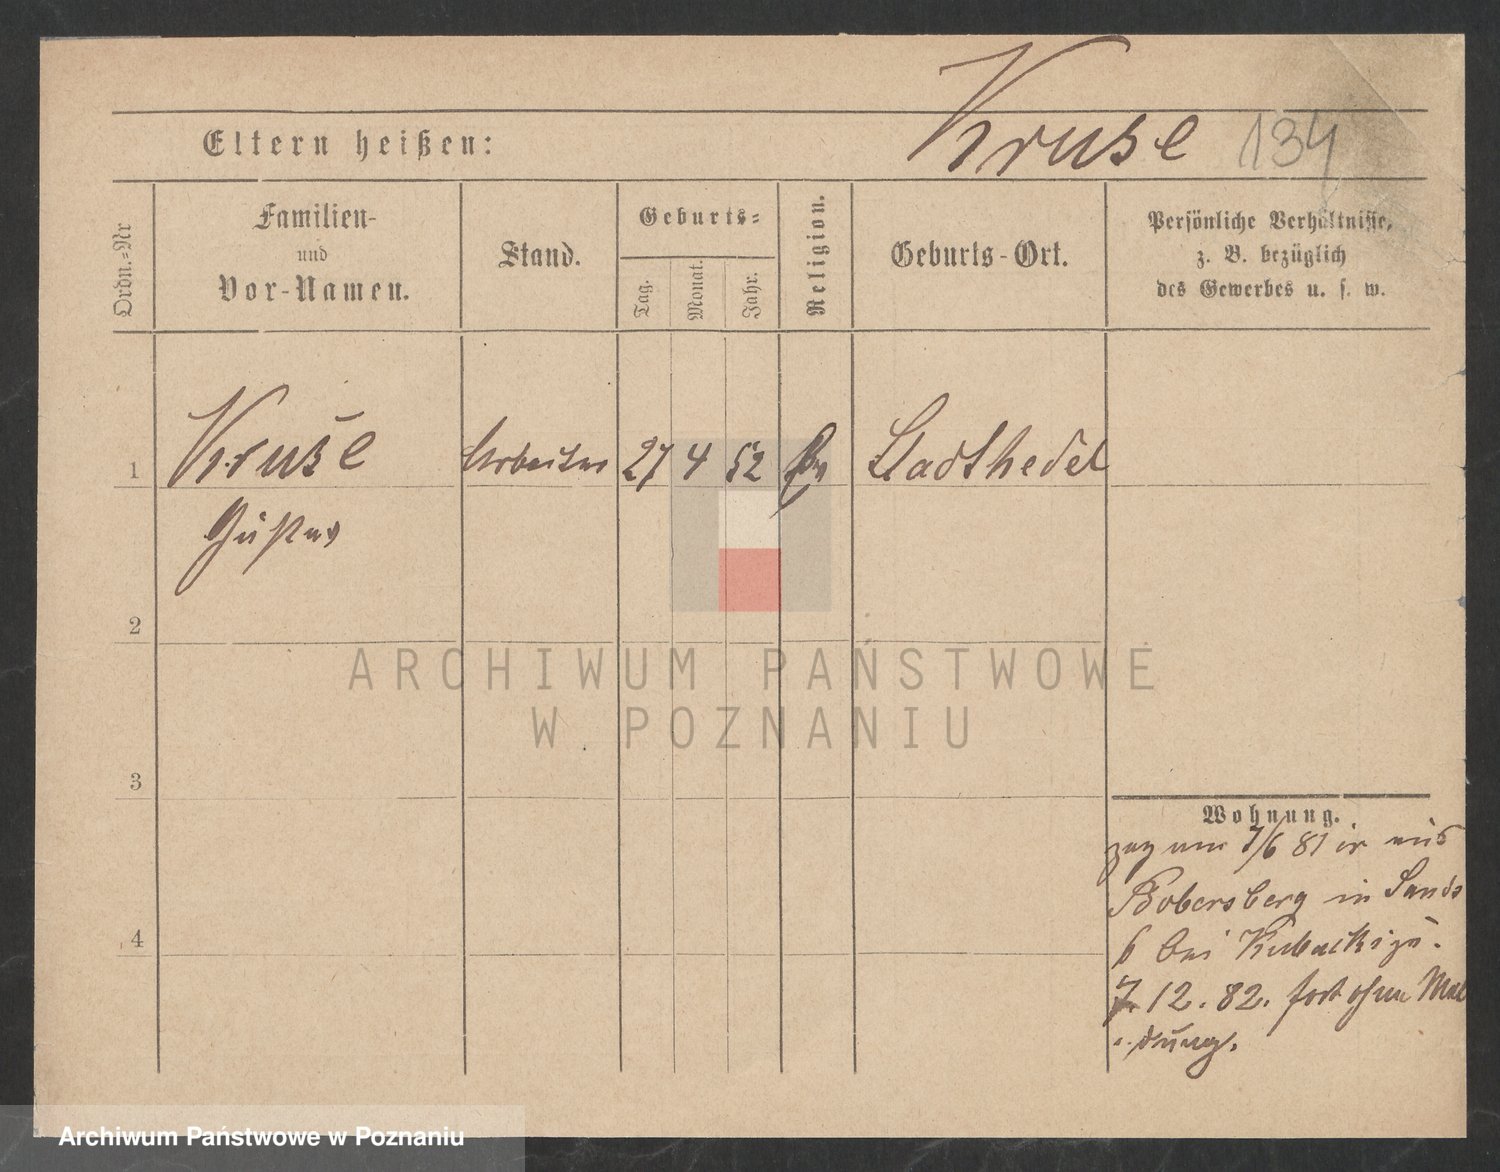 Kruse 134
Eltern heißen:
Ordn.-Nr
Familien-
und
Vor-Namen.
Stand.
Geburts-
Tag.
Monat.
Jahr.
Religion.
Geburts-Ort.
Persönliche Verhältnisse,
z. B. bezüglich
des Gewerbes u. s. w.
1 Kruse Arbeiter 27 4 52 Stadthedel
Gustav
2
3
4
Wohnung.
zug am 7/6 81 aus
Bobersberg in Sands
6 bei Kubacki
7. 12. 82. fort ohne Mel
dung.
ARCHIWUM PAŃSTWOWE
W POZNANIU
Archiwum Państwowe w Poznaniu